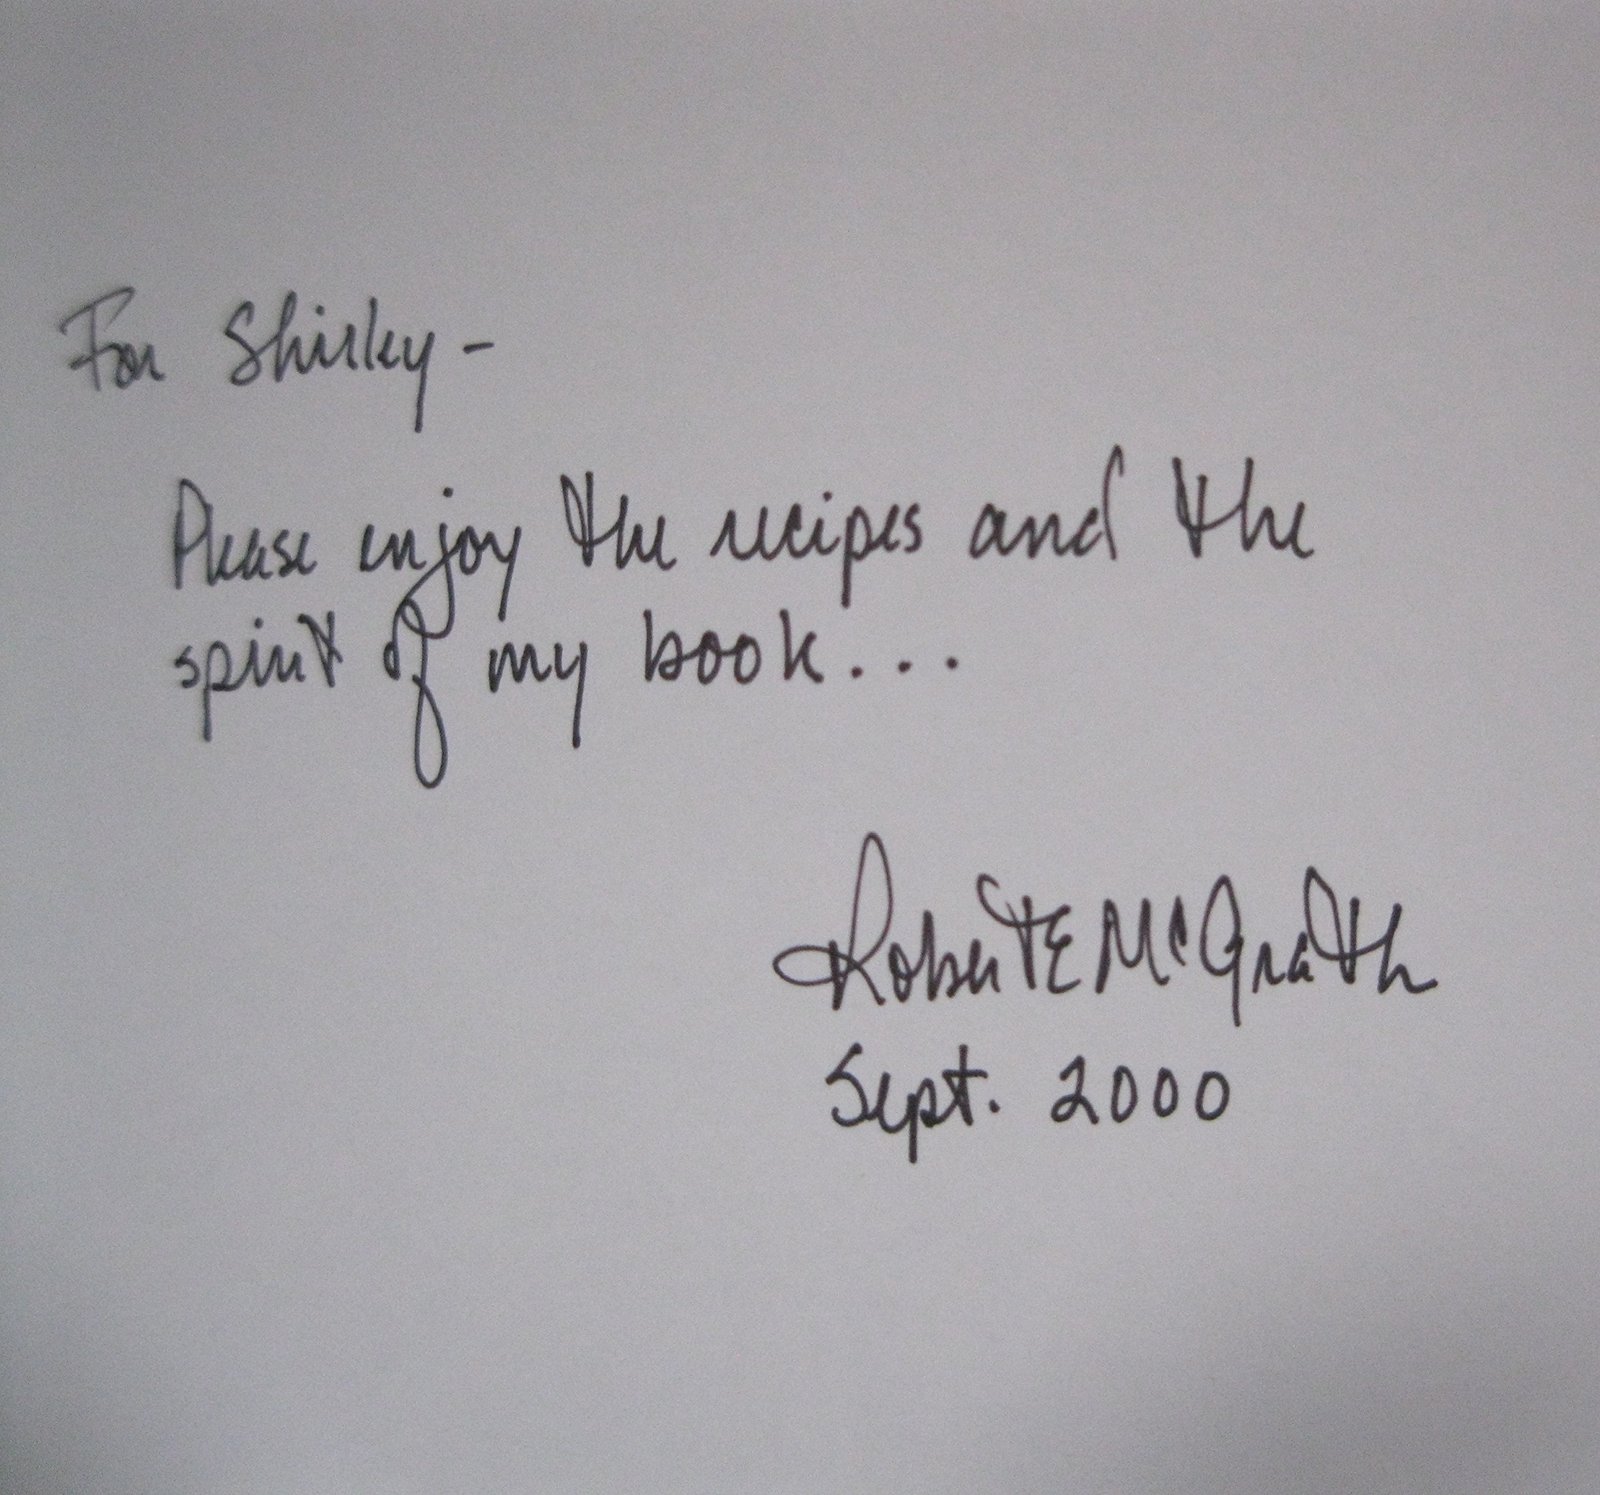 For Shirley -
Please enjoy the recipes and the
spirit of my book...
Robert E McGrath
Sept. 2000